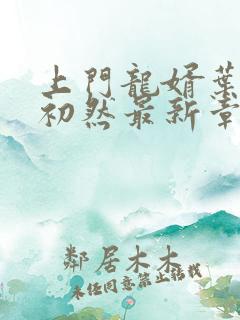 上門龍婿葉
初然最新章
鄰居木木
未經同意禁止轉載